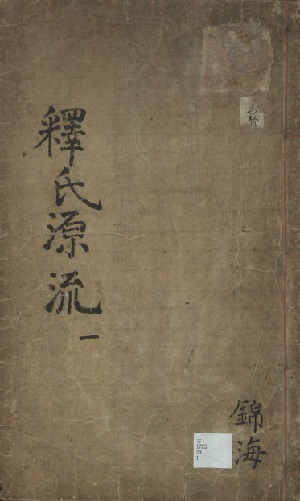 釋氏源流
一
錦海